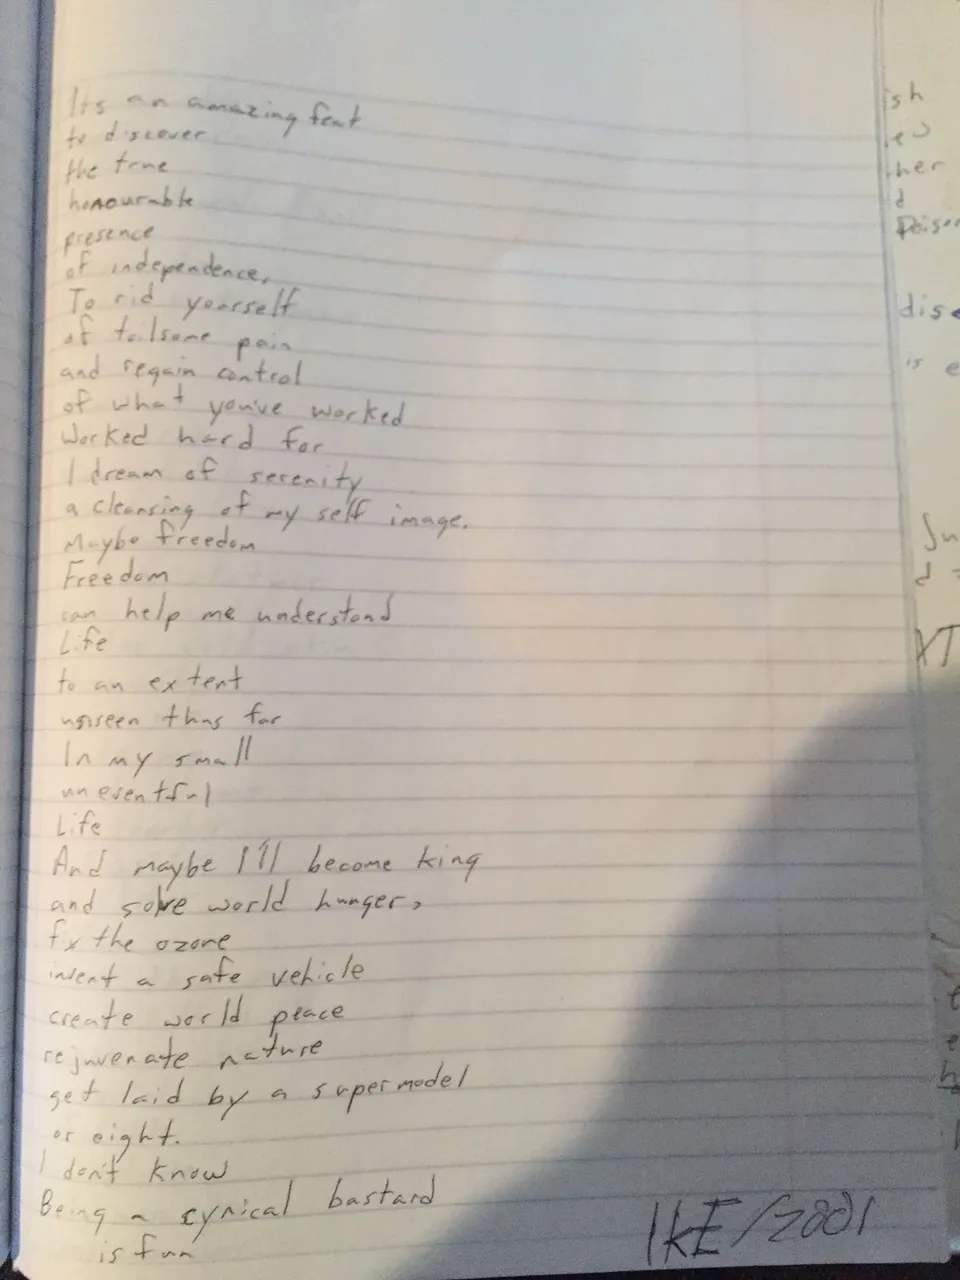 Its an amazing feat
to discover
the true
honourable
presence
of independence,
To rid yourself
of toilsome pain
and regain control
of what you've worked
Worked hard for
I dream of serenity
a cleansing of my self image.
Maybe freedom
Freedom
can help me understand
Life
to an extent
unseen thus far
In my small
uneventful
Life
And maybe I'll become king
and solve world hunger,
fix the ozone
invent a safe vehicle
create world peace
rejuvenate nature
get laid by a supermodel
or eight.
I don't know
Being a cynical bastard
is fun
IKE/2001
ish
her
d
Poison
is e
d
XT